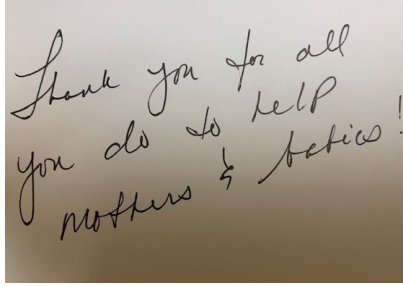 Thank you for all
you do to help
mothers & babies!